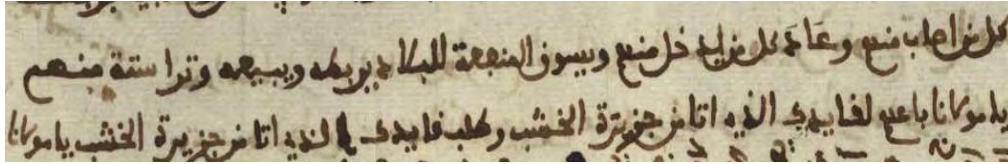 كل من اصاب منهم وعاد كل من ليه خل منهم ويسوق المنفعة للبلاد يربطه ويبيعه وترا ستة منهم
يا مولانا باعهم لقايدك الذي اتا من جزيرة الخشب وطلب قايدك الذي اتا من جزيرة الخشب يا مولانا